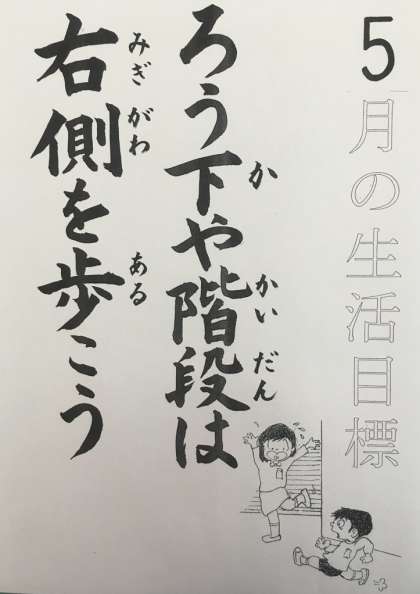 5月の生活目標
ろう下や階段は
か
かいだん
右側を歩こう
みぎがわ
ある